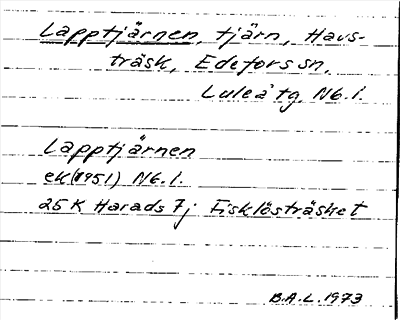 Lapptjärnen, tjärn, Havs-
träsk, Edefors sn,
Luleå tg. Nb.l.
Lapptjärnen
ek(1951) Nb.l.
25K Harads 7j Fisklösträsket
B.A.L. 1973